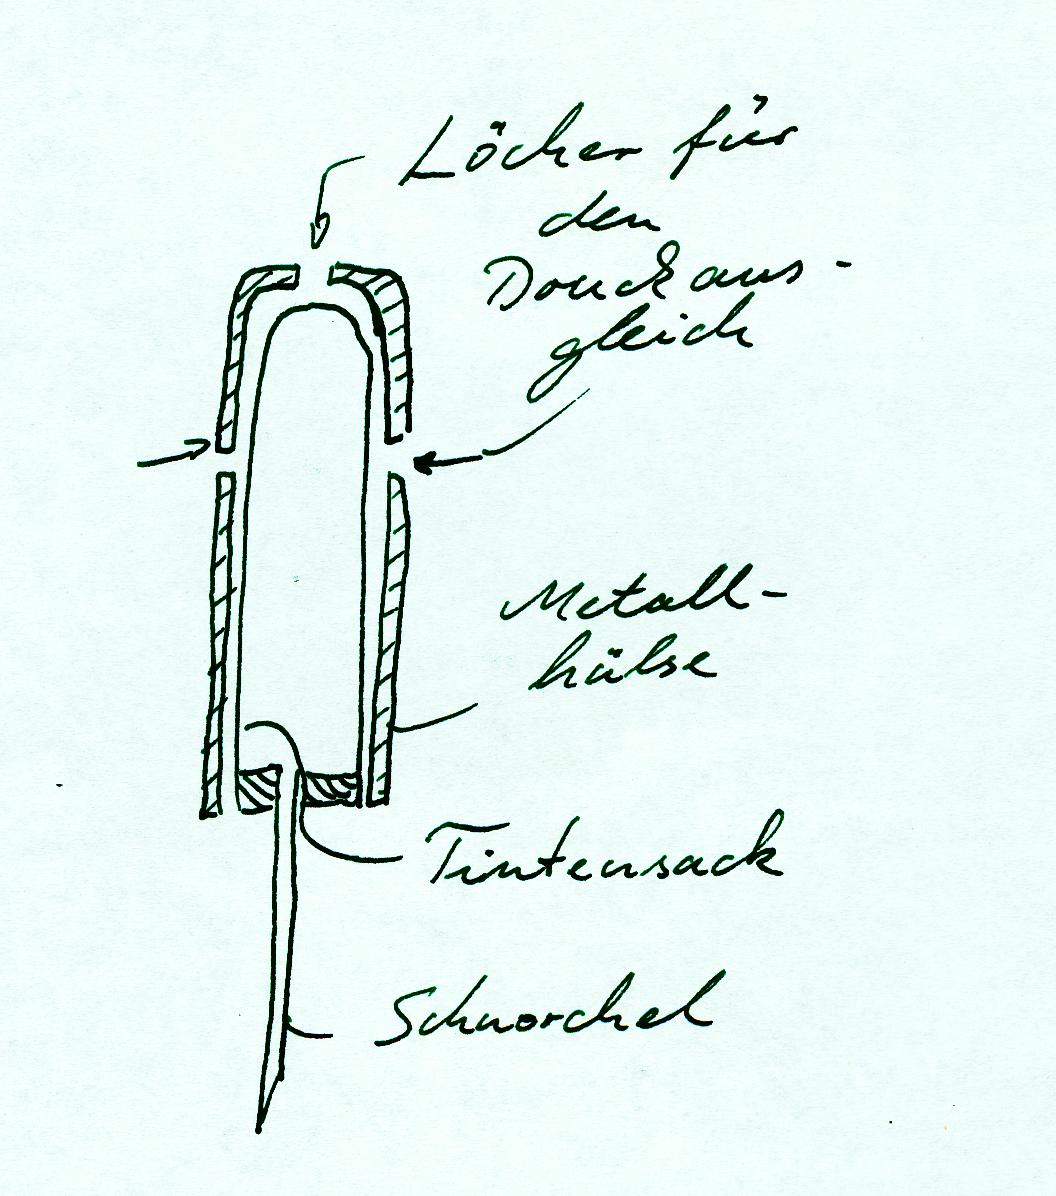 Löcher für
den
Druckaus-
gleich
Metall-
hülse
Tintensack
Schnorchel